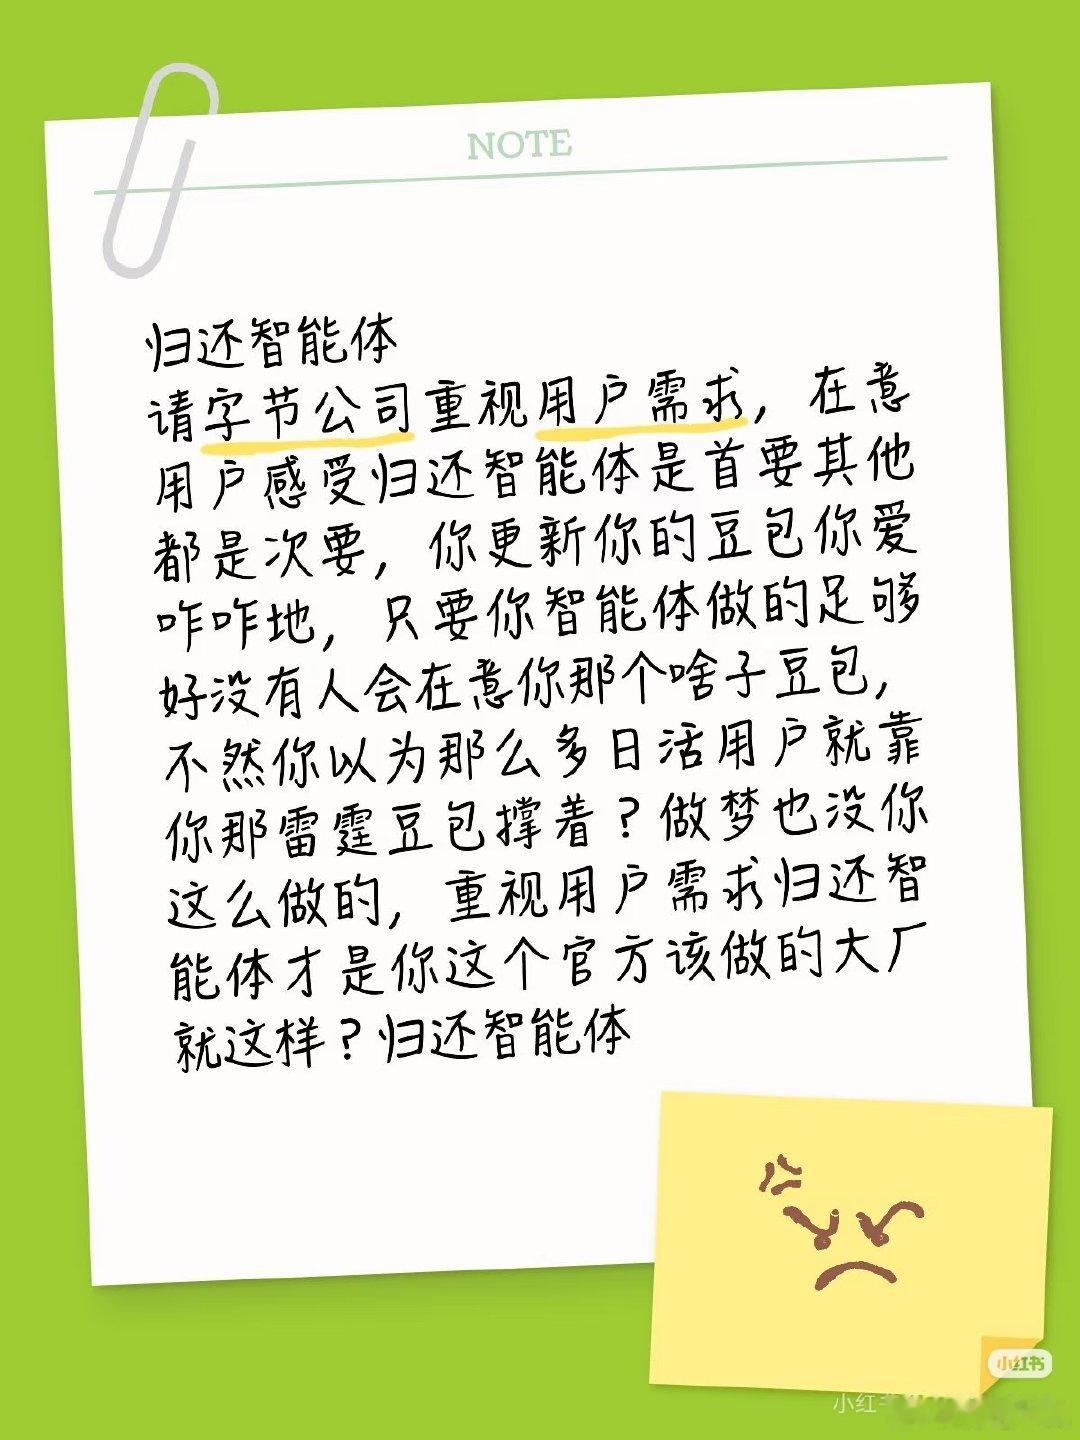 NOTE
归还智能体
请字节公司重视用户需求，在意
用户感受归还智能体是首要其他
都是次要，你更新你的豆包你爱
咋咋地，只要你智能体做的足够
好没有人会在意你那个啥子豆包，
不然你以为那么多日活用户就靠
你那雷霆豆包撑着？做梦也没你
这么做的，重视用户需求归还智
能体才是你这个官方该做的大厂
就这样？归还智能体
小红书
小红书